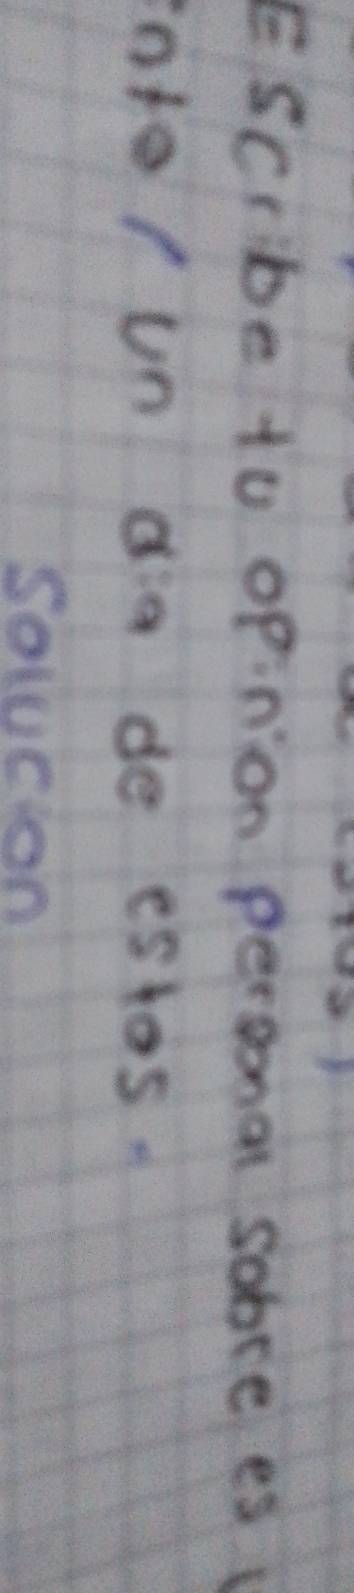 Escribe tu opinion personal sobre es
nto / un dia de estos.
Solucion